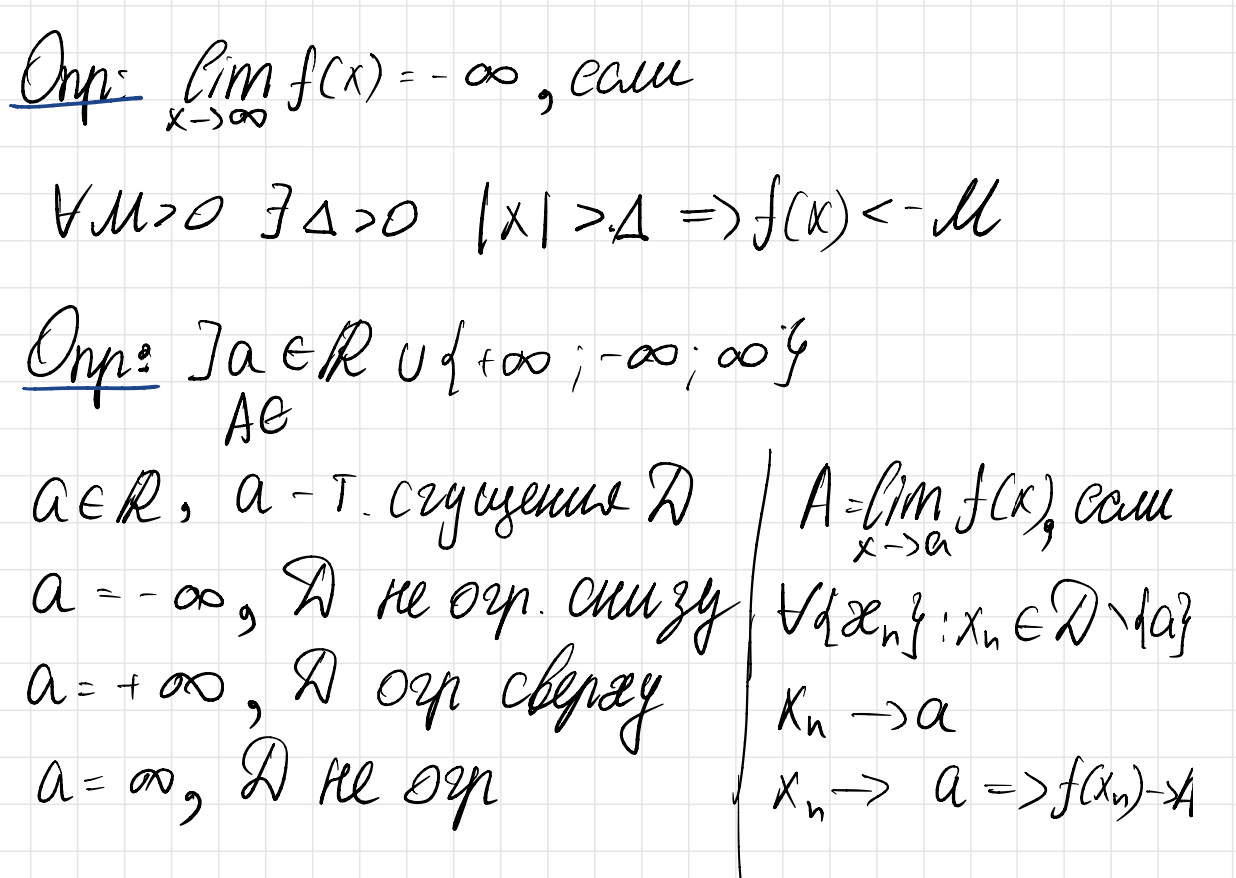 Опр: lim f(x) = - ∞, если
x→∞
∀M>0 ∃Δ>0 |x| > Δ => f(x) < -M
Опр: ]a ∈ ℝ ∪ {+∞ ; -∞ ; ∞}
A∈
a∈ℝ, a - т. сгущения D
a = - ∞, D не огр. снизу
a = + ∞, D огр сверху
a = ∞, D не огр
A = lim f(x), если
x→a
∀{xₙ} : xₙ ∈ D \ {a}
xₙ → a
xₙ → a => f(xₙ) → A